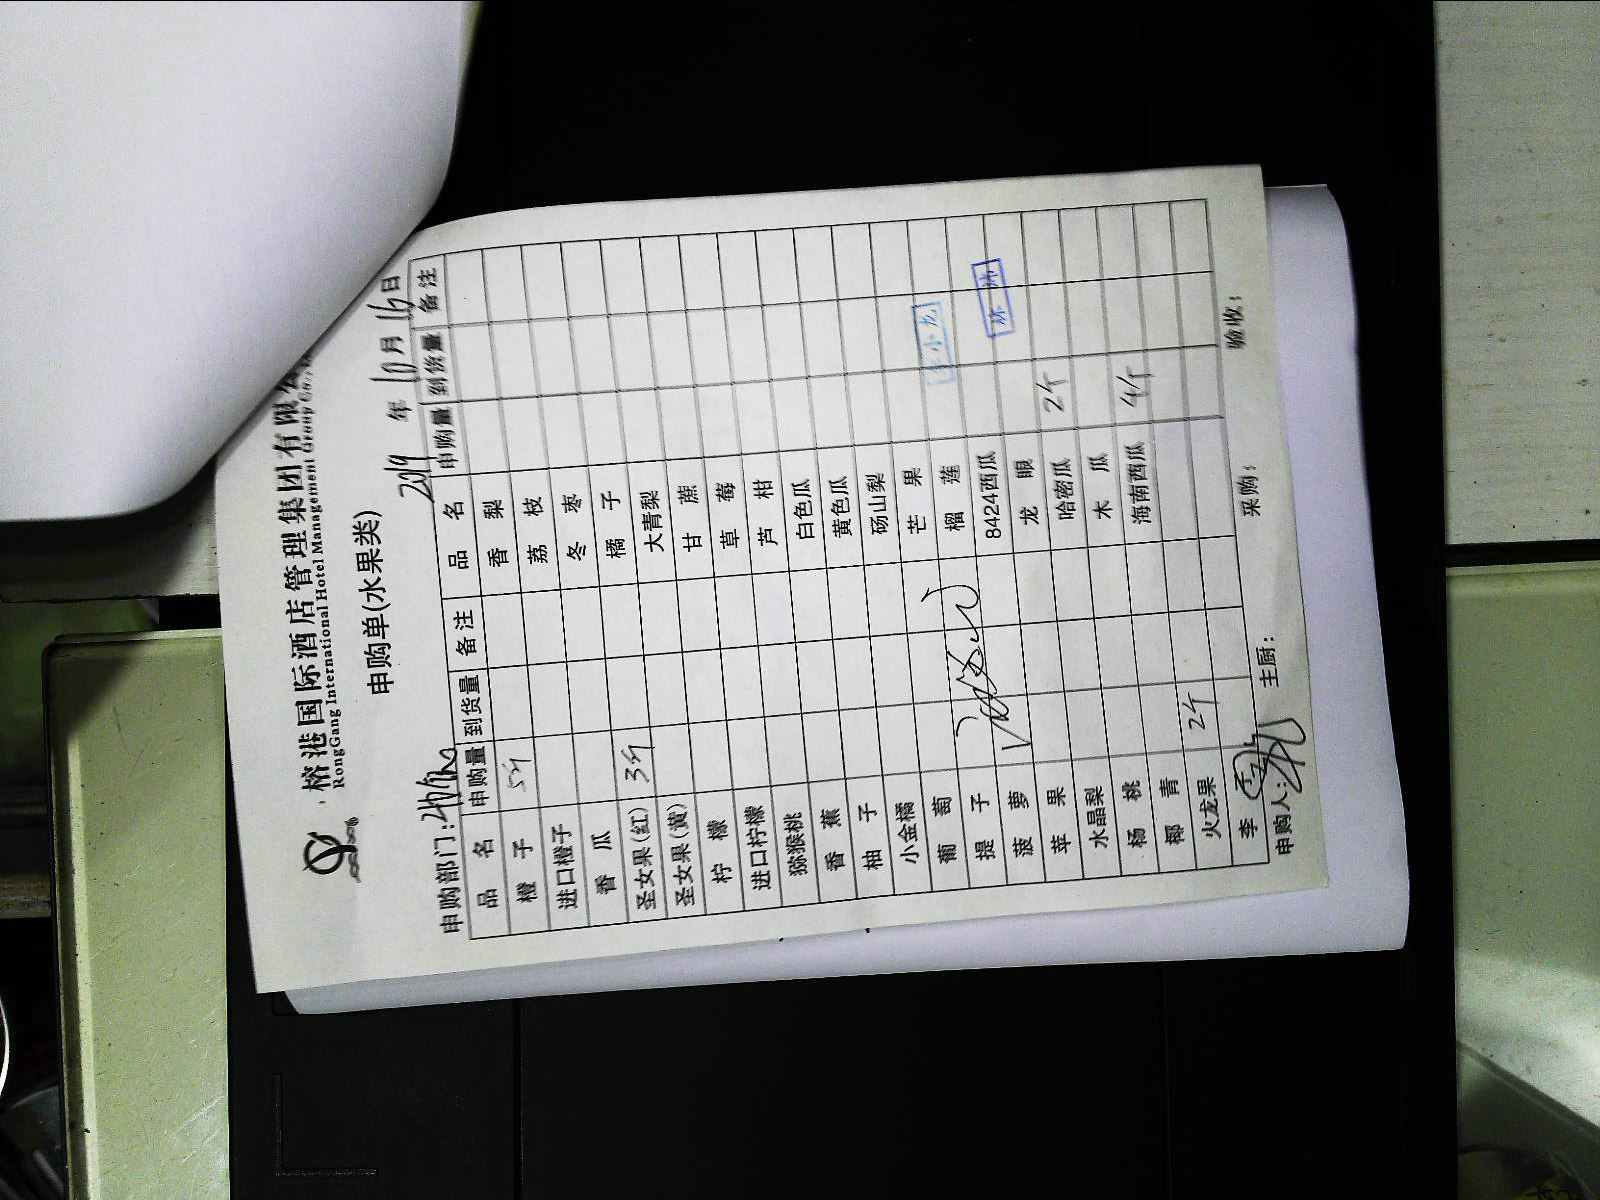 榕港国际酒店管理集团有限
RongGang International Hotel Management Group Co.
申购单(水果类)
申购部门: 2019 年 10月 16日
品 名 申购量 到货量 备 注 品 名 申购量 到货量 备 注
橙 子 5斤 香 梨
进口橙子 荔 枝
香 瓜 冬 枣
圣女果(红) 3斤 橘 子
圣女果(黄) 大青梨
柠 檬 甘 蔗
进口柠檬 草 莓
猕猴桃 芦 柑
香 蕉 白色瓜
柚 子 黄色瓜
小金橘 砀山梨
葡 萄 芒 果
提 子 榴 莲
菠 萝 8424西瓜
苹 果 龙 眼
水晶梨 哈密瓜 2个
杨 桃 木 瓜
椰 青 海南西瓜 4个
火龙果 2个
李 子
申购人: 主厨: 采购: 验收:
李小龙
林 炜